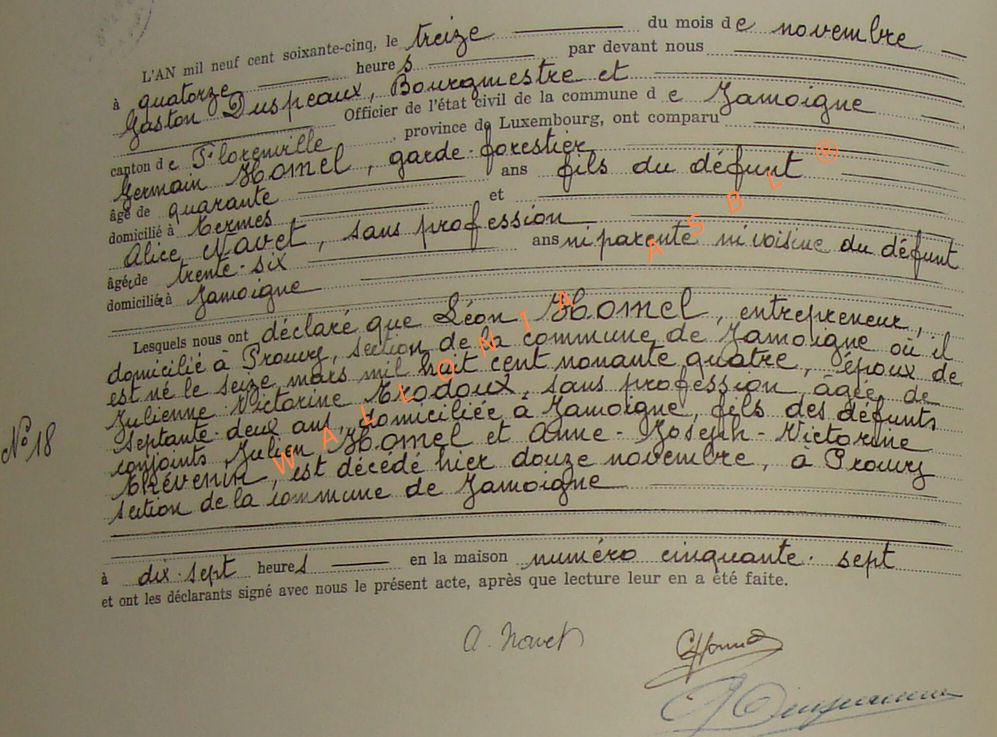 L'AN mil neuf cent soixante-cinq, le treize du mois de novembre
à quatorze heures par devant nous
Gaston Duspeaux, Bourgmestre et
Officier de l'état civil de la commune de Jamoigne
canton de Florenville, province de Luxembourg, ont comparu
Germain Homel, garde-forestier
âgé de quarante ans fils du défunt
domicilié à Termes et
Alice Navet, sans profession
âgée de trente-six ans ni parente ni voisine du défunt
domiciliée à Jamoigne
Lesquels nous ont déclaré que Léon Homel, entrepreneur,
domicilié à Prouvy, section de la commune de Jamoigne où il
est né le seize mars mil huit cent nonante quatre, époux de
Julienne-Victorine Trodoux, sans profession, agée de
septante-deux ans, domiciliée à Jamoigne, fils des défunts
conjoints, Julien Homel et Anne-Joseph-Victorine
Thévenin, est décédé hier douze novembre, à Prouvy
section de la commune de Jamoigne
N° 18
à dix-sept heures en la maison numéro cinquante-sept
et ont les déclarants signé avec nous le présent acte, après que lecture leur en a été faite.
A. Navet
WALLONIA ASBL ®